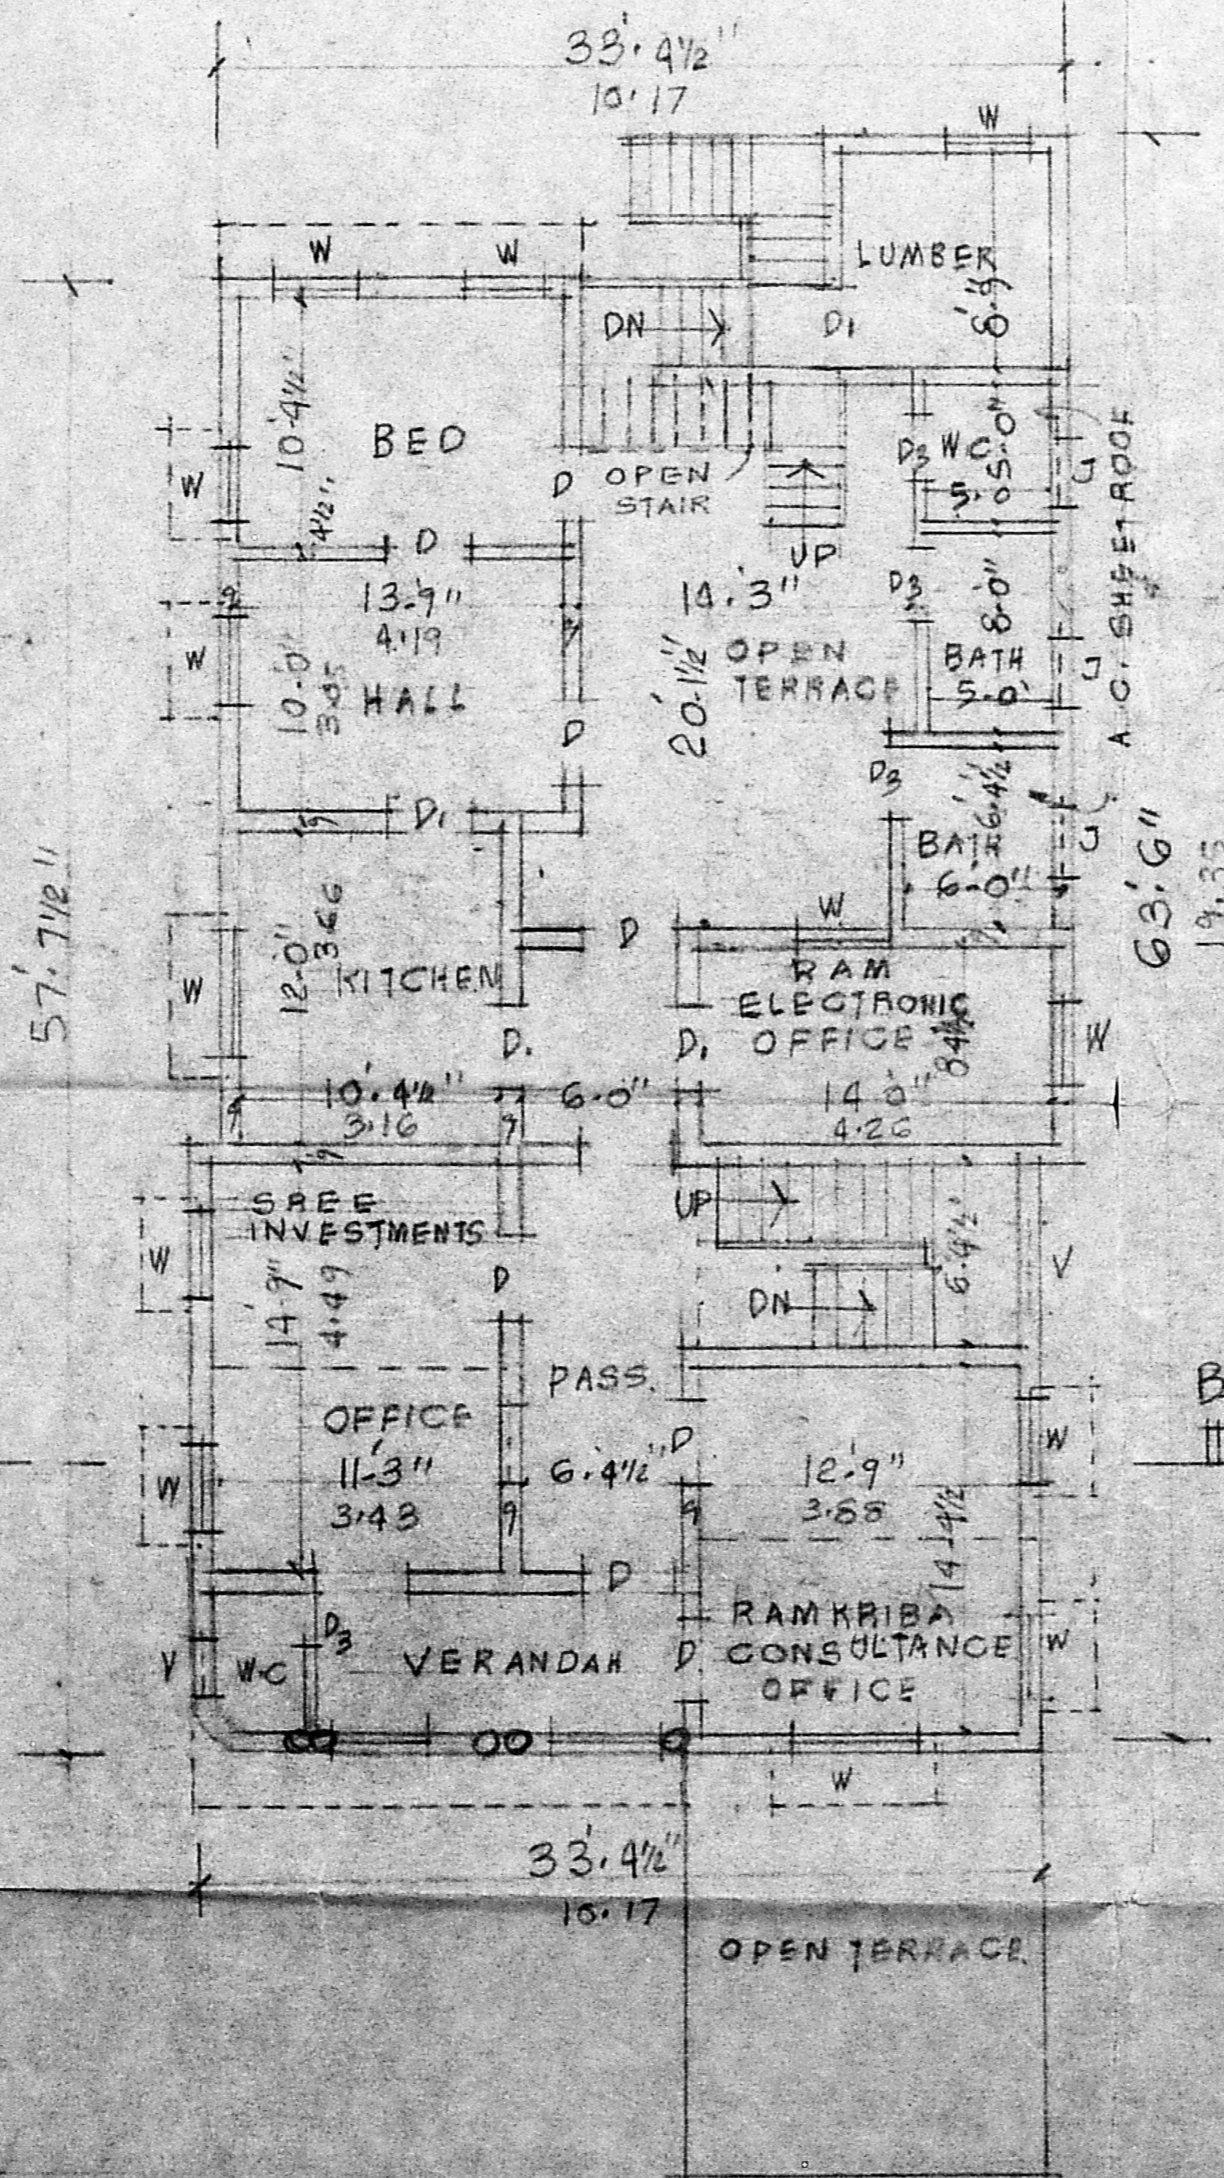 33'.4½"
10.17
W
W W
LUMBER
DN
D1
8'-9"
10'-4½"
BED
W
D
OPEN
STAIR
UP
D3
W.C
5.0
5-0"
J
A.C. SHEET ROOF
4½"
D
9
13-9"
4.19
14.3"
D3
8-0"
W
10-0"
3.05
HALL
20'.1½"
OPEN
TERRACE
BATH
5-0"
J
D
D3
D1
9
6'-4½"
BATH
6'-0"
J
57'.7½"
63'.6"
19.35
12-0"
3.66
KITCHEN
W
D
W
RAM
ELECTRONIC
OFFICE
8'4½"
W
D1
D1
9
10'.4½"
3.16
9
6-0"
14'0"
4.26
9
SREE
INVESTMENTS
UP
6-4½"
V
W
14'-9"
4.49
D
DN
PASS.
OFFICE
11'-3"
3.43
9
6'.4½"
D
9
12'-9"
3.88
W
W
B
14-4½
D
D3
RAMKRIBA
CONSULTANCE
OFFICE
W
V
W.C
VERANDAH
D
W
33'.4½"
10.17
OPEN TERRACE